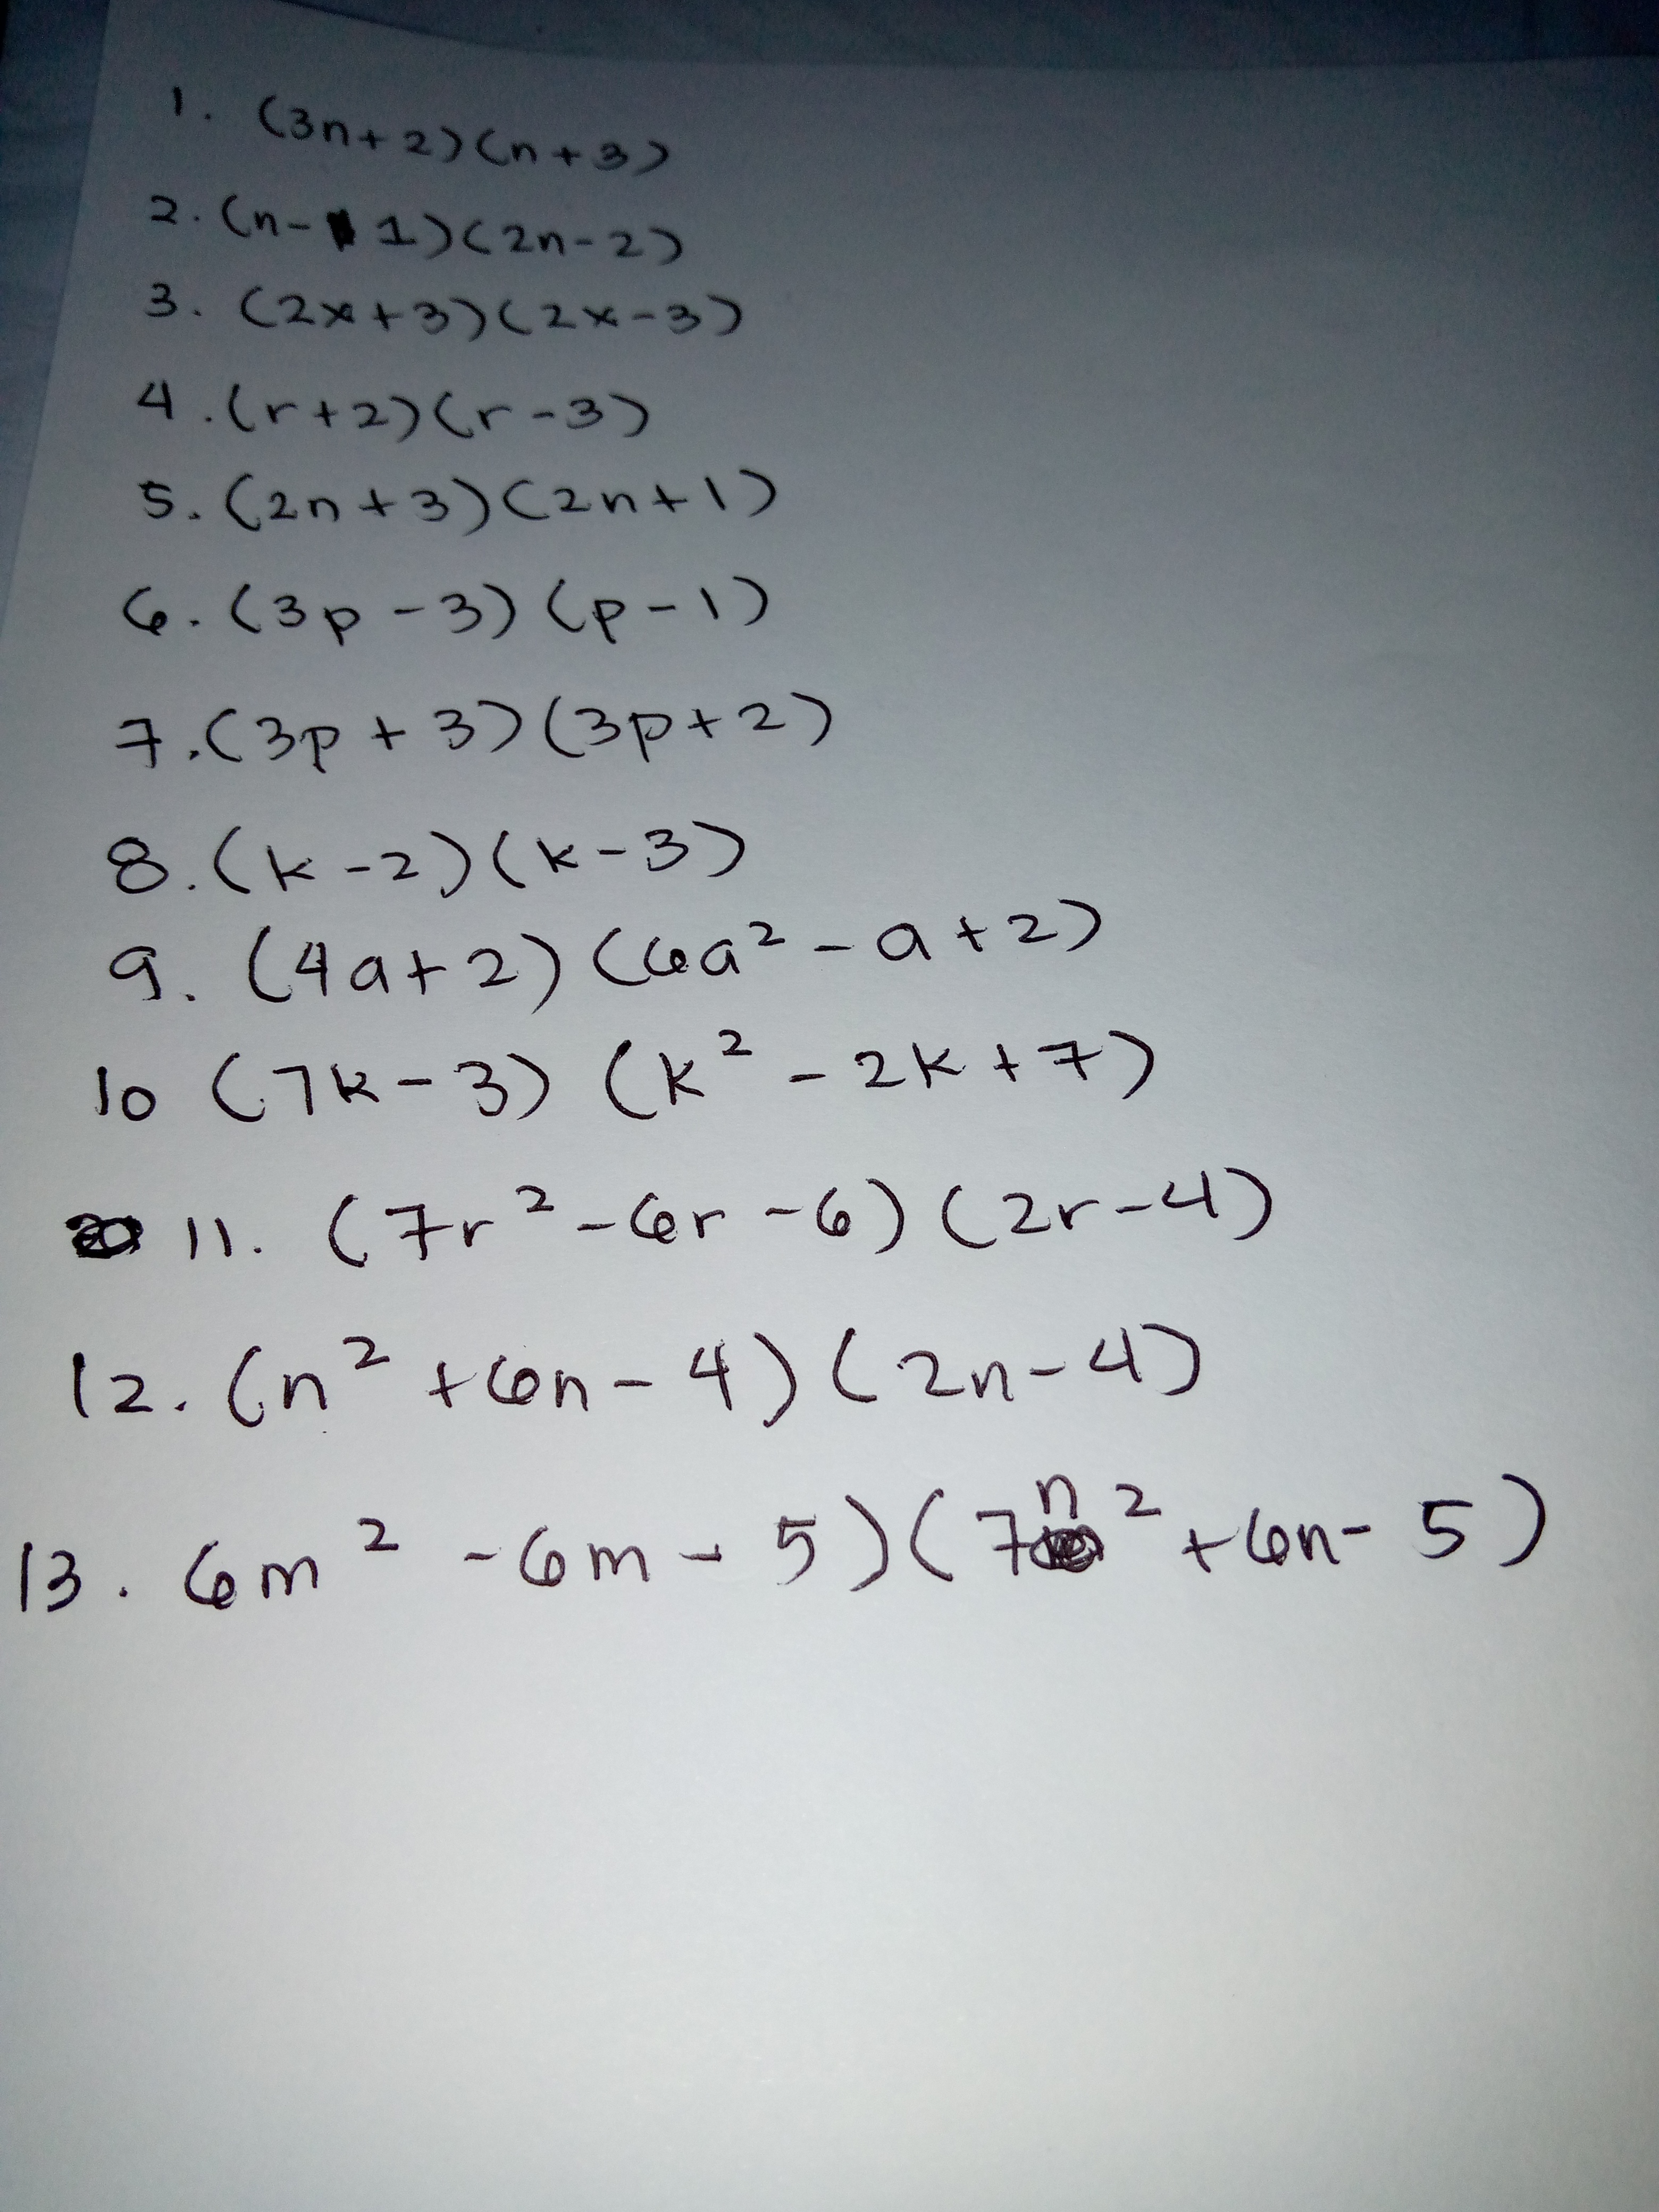 1. (3n+2)(n+3)
2. (n-1)(2n-2)
3. (2x+3)(2x-3)
4. (r+2)(r-3)
5. (2n+3)(2n+1)
6. (3p-3)(p-1)
7. (3p+3)(3p+2)
8. (k-2)(k-3)
9. (4a+2)(6a²-a+2)
10 (7k-3)(k²-2k+7)
11. (7r²-6r-6)(2r-4)
12. (n²+6n-4)(2n-4)
13. 6m²-6m-5)(7n²+6n-5)